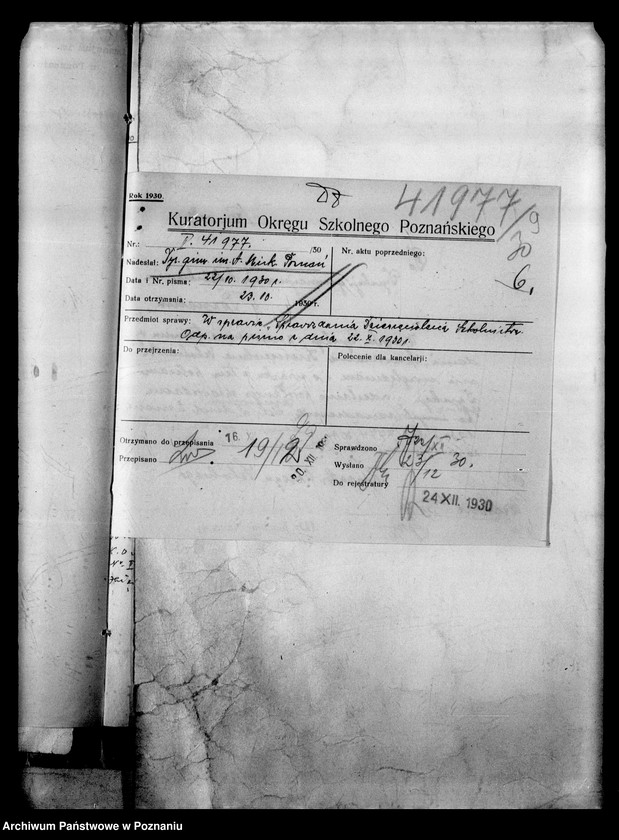 Rok 1930
41977/9
30
Kuratorjum Okręgu Szkolnego Poznańskiego
Nr.: I. 41977. /30
Nr. aktu poprzedniego:
6.
Nadesłał: Dyr. gimn. im. Poznań
Data i Nr. pisma: 22/10. 1930 r.
Data otrzymania: 23.10. 1930 r.
Przedmiot sprawy: W sprawie Sprawozdania Dziesięciolecia Szkolnictwa.
Odp. na pismo z dnia 22. X. 1930 r.
Do przejrzenia:
Polecenie dla kancelarji:
Otrzymano do przepisania 16. X 19/12
20. XII.
Sprawdzono
Przepisano
Wysłano 23/12 30.
Do rejestratury
24 XII. 1930
Archiwum Państwowe w Poznaniu